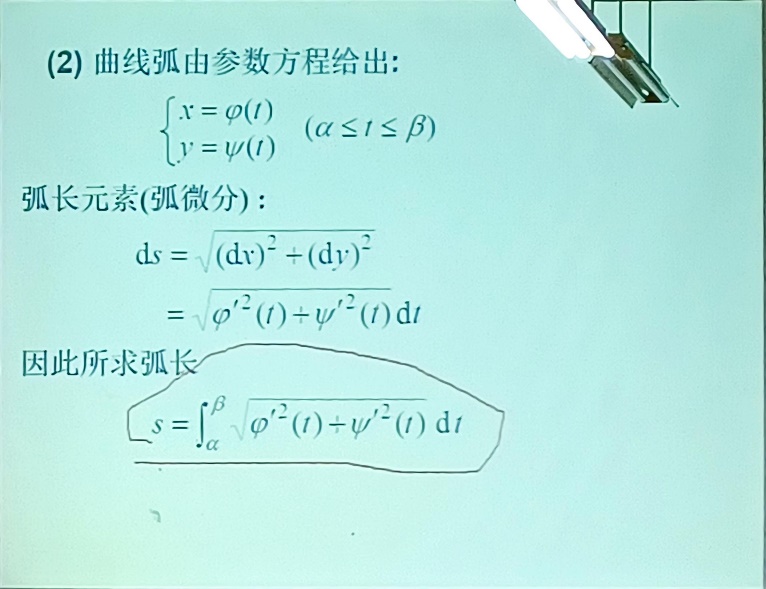 (2) 曲线弧由参数方程给出:
{ x = φ(t)
y = ψ(t) (α ≤ t ≤ β)
弧长元素(弧微分) :
ds = √((dx)² + (dy)²)
= √(φ′²(t) + ψ′²(t)) dt
因此所求弧长
s = ∫_α^β √(φ′²(t) + ψ′²(t)) dt